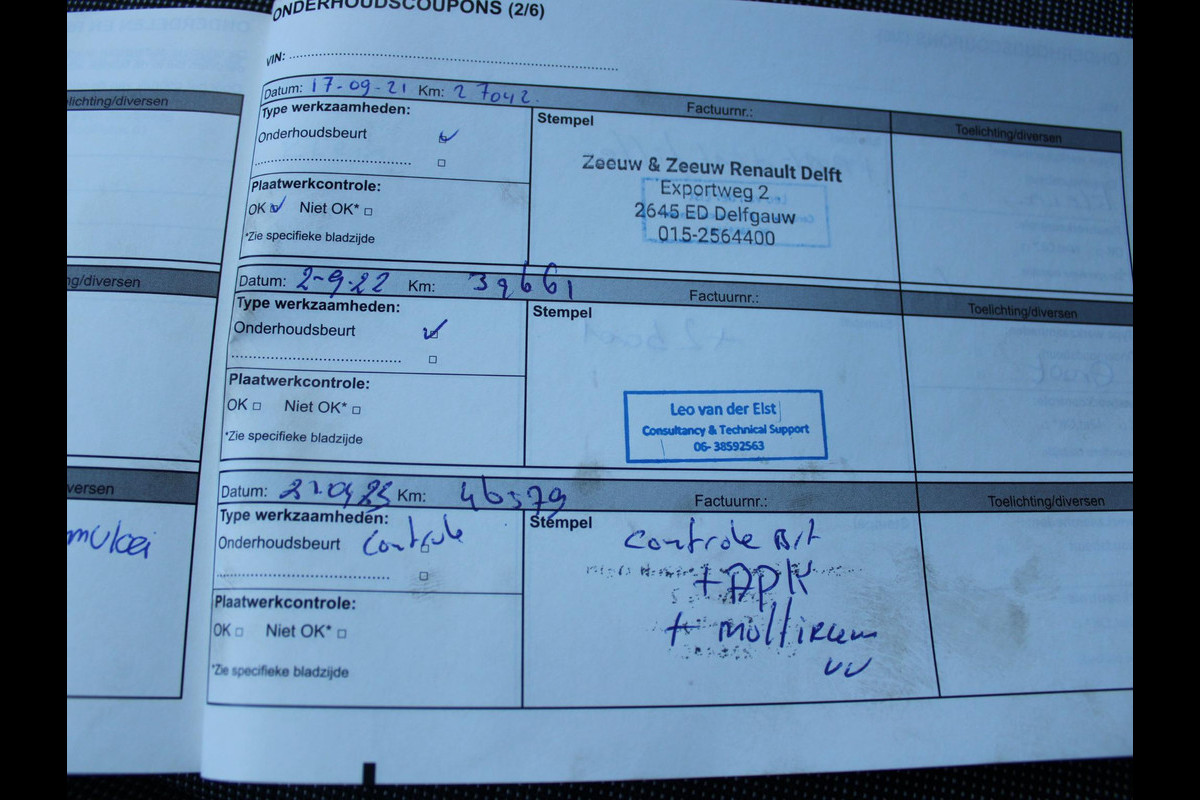 ONDERHOUDSCOUPONS (2/6)
VIN:
lichting/diversen
Datum: 17-09-21 Km: 27042.
Factuurnr.:
Toelichting/diversen
Type werkzaamheden:
Onderhoudsbeurt
Stempel
Zeeuw & Zeeuw Renault Delft
Exportweg 2
2645 ED Delfgauw
015-2564400
Plaatwerkcontrole:
OK Niet OK*
*Zie specifieke bladzijde
ng/diversen
Datum: 2-9-22 Km: 39661
Factuurnr.:
Toelichting/diversen
Type werkzaamheden:
Onderhoudsbeurt
Stempel
Plaatwerkcontrole:
OK Niet OK*
*Zie specifieke bladzijde
Leo van der Elst
Consultancy & Technical Support
06- 38592563
versen
Datum: 21.04.23 Km: 46579
Factuurnr.:
Toelichting/diversen
Type werkzaamheden:
Onderhoudsbeurt Controle
Stempel
Controle Brt
+ APK
+ multiriem
VV
Plaatwerkcontrole:
OK Niet OK*
*Zie specifieke bladzijde